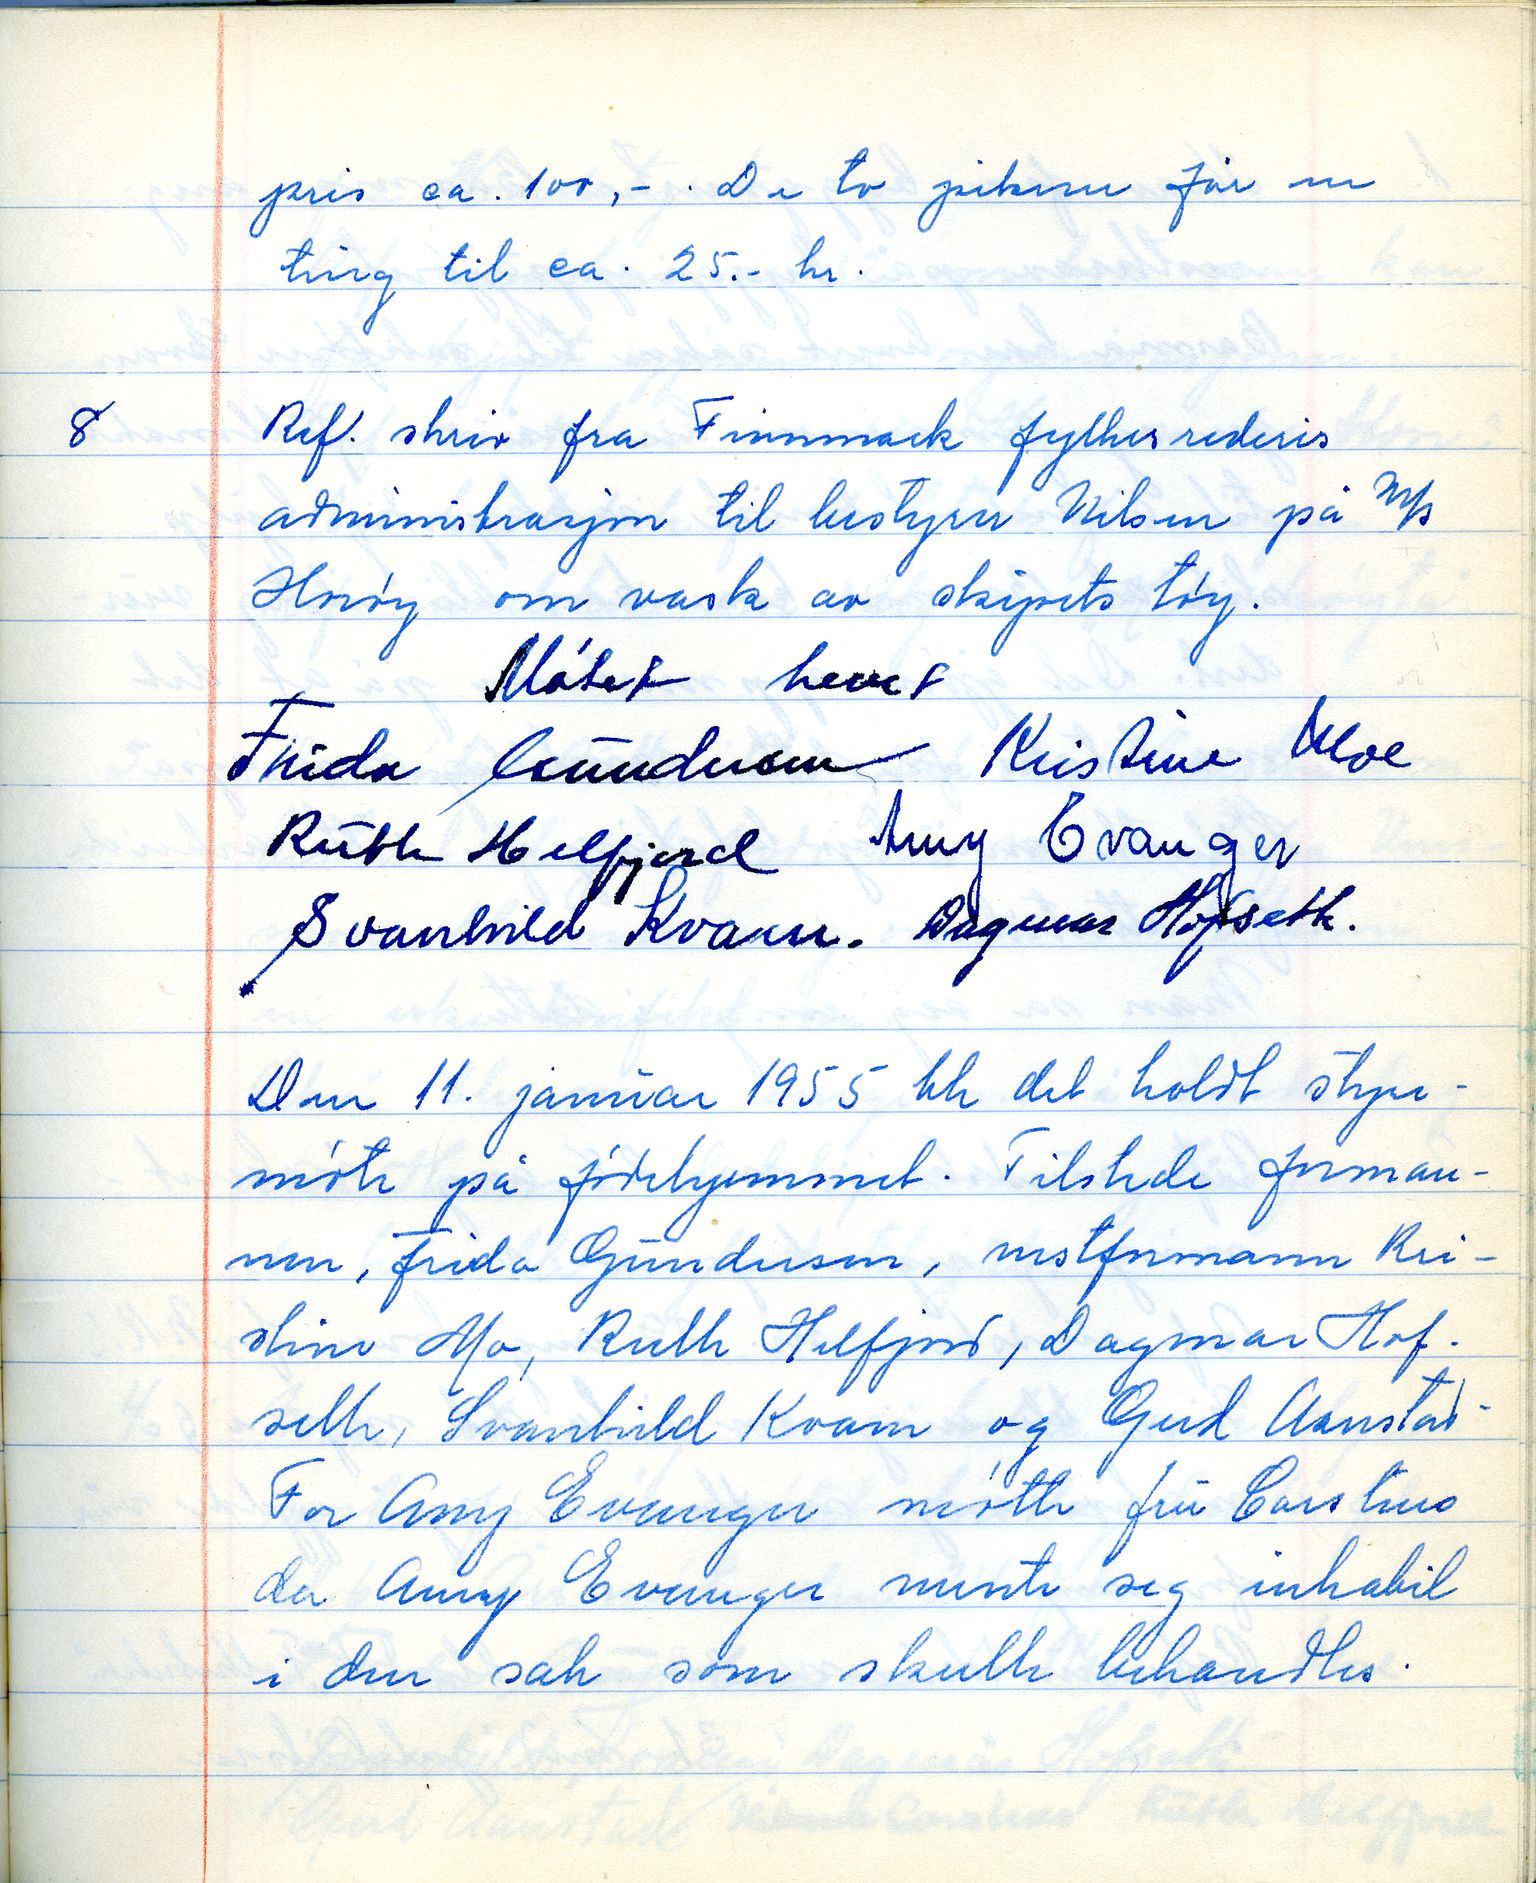 pris ca. 100,-. De to pikene får en
ting til ca. 25.- kr.
8 Ref. skriv fra Finnmark fylkesrederis
administrasjon til bestyrer Nilsen på M/s
Hornøy om vask av skipets tøy.
Møtet hevet
Frida Gundersen Kristine Moe
Ruth Helfjord Amy Evanger
Svanhild Kvam. Dagmar Hofseth.
Den 11. januar 1955 ble det holdt styre-
møte på fødehjemmet. Tilstede forman-
nen, Frida Gundersen, nestformann Kri-
stine Mo, Ruth Helfjord, Dagmar Hof-
seth, Svanhild Kvam og Gerd Aanstad.
For Amy Evanger møtte fru Carstens
da Amy Evanger mente seg inhabil
i den sak som skulle behandles.